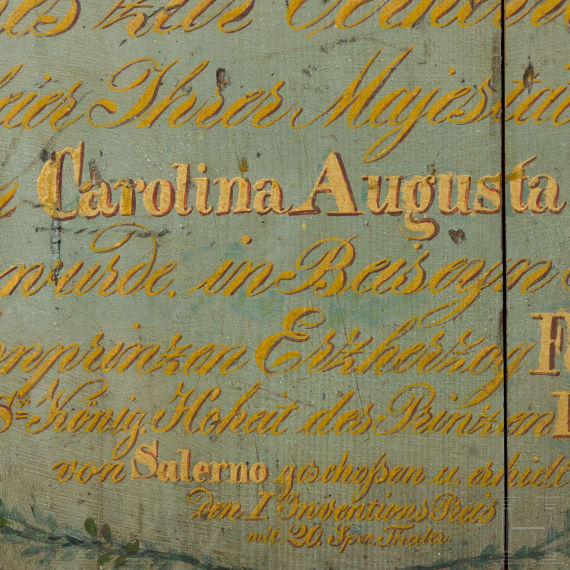 des
feier Ihrer Majestät
Carolina Augusta
wurde. in Beiseyn
onprinzen Erzherzog F
Sr König. Hoheit des Prinzen
von Salerno geschoßen u. erhielt
den I Inventions Preis
mit 20. Spec. Thaler.